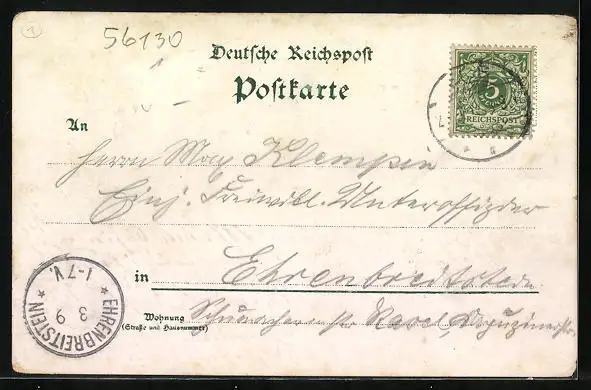 1
56130
Deutsche Reichspost
Postkarte
5
REICHSPOST
An
Herrn Max Klempen
Einj. Freiwill. Unteroffizier
in Ehrenbreitstein
Wohnung
(Straße und Hausnummer)
EHRENBREITSTEIN
3 9
1-7V.